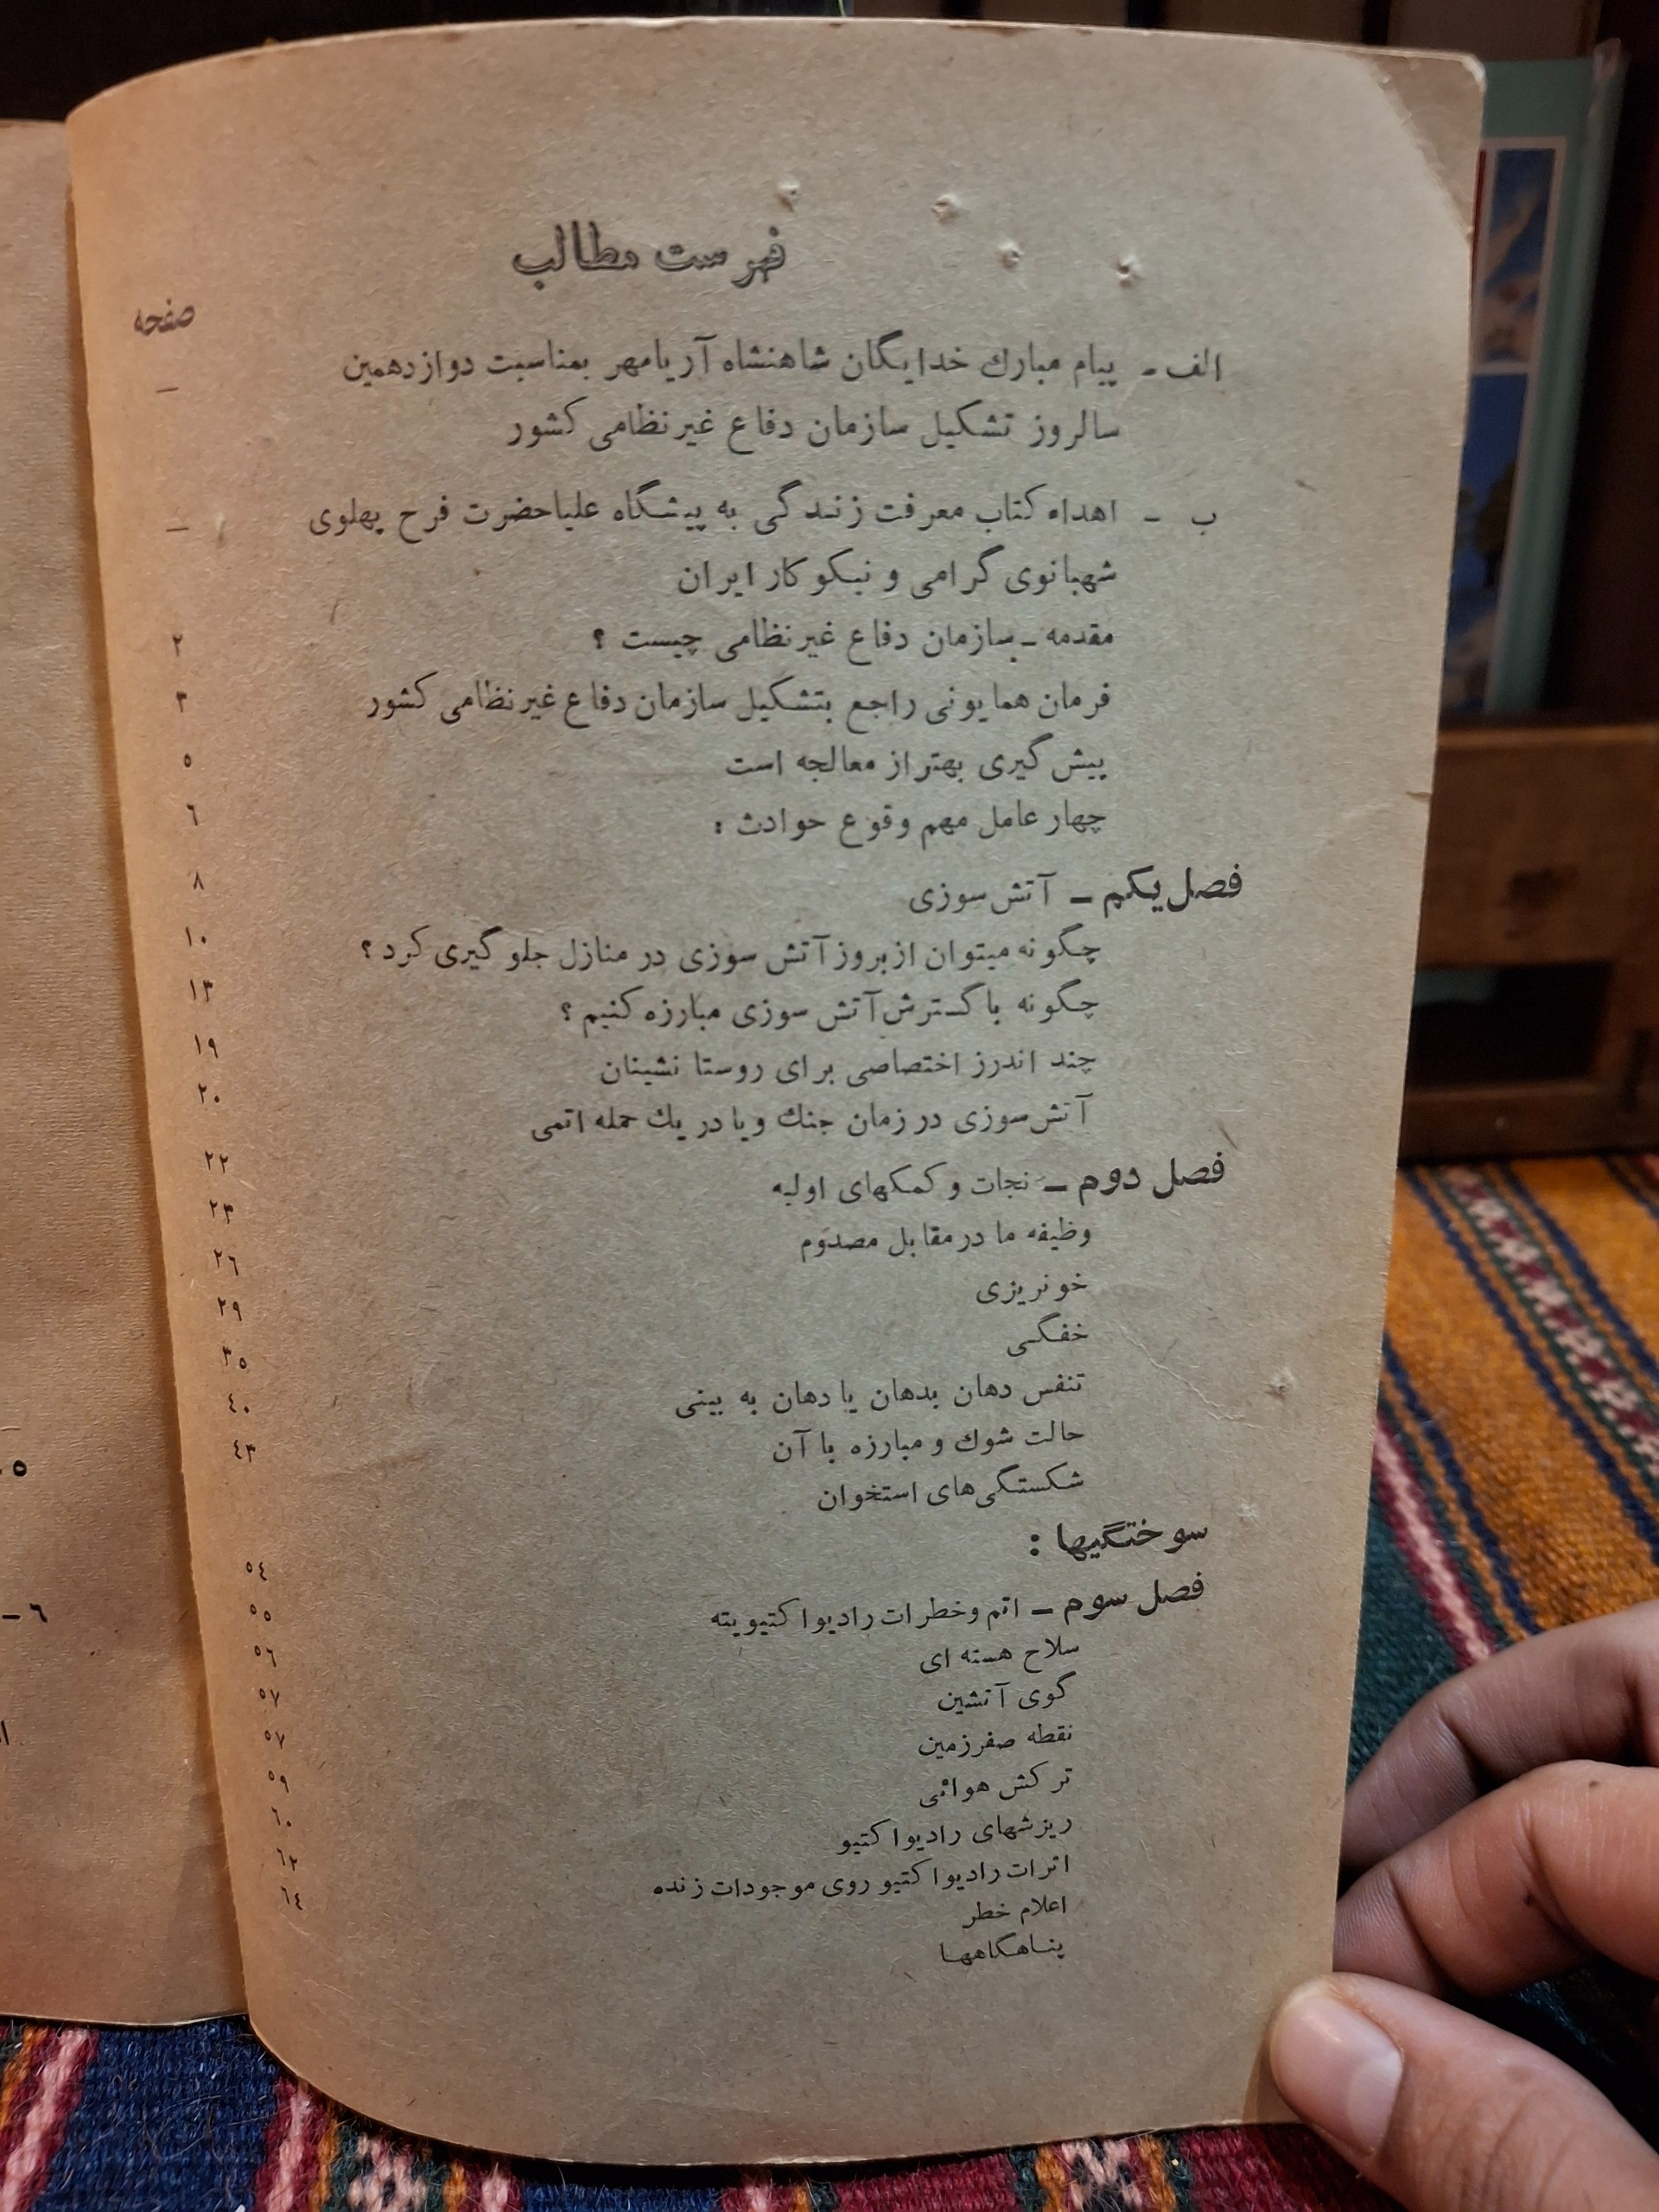 فهرست مطالب
صفحه
الف ـ پیام مبارك خدایگان شاهنشاه آریامهر بمناسبت دوازدهمین —
سالروز تشکیل سازمان دفاع غیرنظامی کشور
ب ـ اهداء کتاب معرفت زندگی به پیشگاه علیاحضرت فرح پهلوی —
شهبانوی گرامی و نیکوکار ایران
مقدمه ـ سازمان دفاع غیرنظامی چیست ؟ ۲
فرمان همایونی راجع بتشکیل سازمان دفاع غیرنظامی کشور ۳
پیش گیری بهتر از معالجه است ۵
چهار عامل مهم وقوع حوادث : ٦
فصل یکم ـ آتش سوزی ۸
چگونه میتوان از بروز آتش سوزی در منازل جلوگیری کرد ؟ ۱۰
چگونه با گسترش آتش سوزی مبارزه کنیم ؟ ۱۳
چند اندرز اختصاصی برای روستا نشینان ۱۹
آتش سوزی در زمان جنك ویا در یك حمله اتمی ۲۰
فصل دوم ـ نجات و کمکهای اولیه ۲۲
وظیفه ما در مقابل مصدوم ۲۳
خونریزی ۲٦
خفگی ۲۹
تنفس دهان بدهان یا دهان به بینی ۳۵
حالت شوك و مبارزه با آن ٤۰
شکستگی‌های استخوان ٤۳
سوختگیها :
فصل سوم ـ اتم وخطرات رادیواکتیویته ۵٤
سلاح هسته ای ۵۵
گوی آتشین ۵٦
نقطه صفرزمین ۵۷
ترکش هوائی ۵۷
ریزشهای رادیواکتیو ۵۹
اثرات رادیواکتیو روی موجودات زنده ٦۰
اعلام خطر ٦۲
پناهگاهها ٦٤